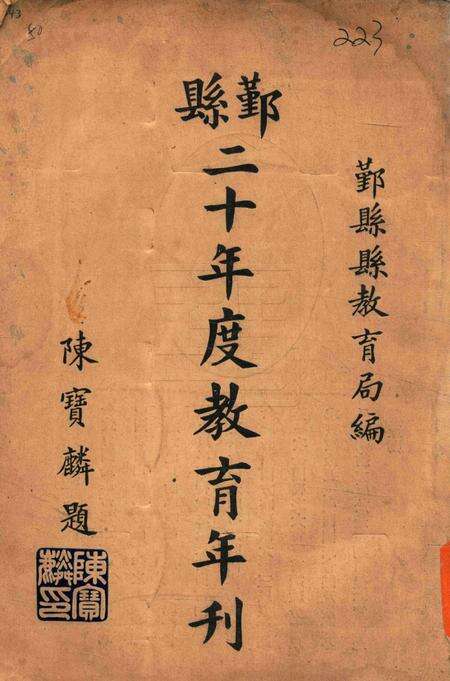 223
鄞縣縣教育局編
鄞縣
二十年度教育年刊
陳寶麟題
陳寶麟印